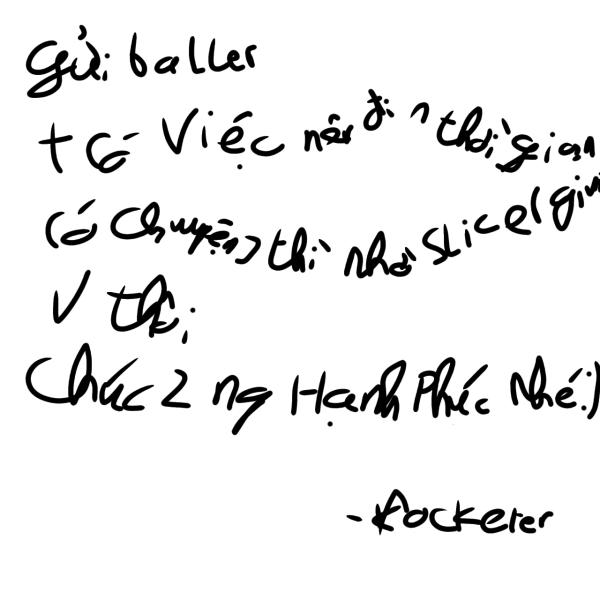 Gửi baller
t có Việc nên đi n thời gian
có chuyện thì nhờ slicer giúp
V thôi
Chúc 2 ng Hạnh Phúc Nhé:)
- Rocketer